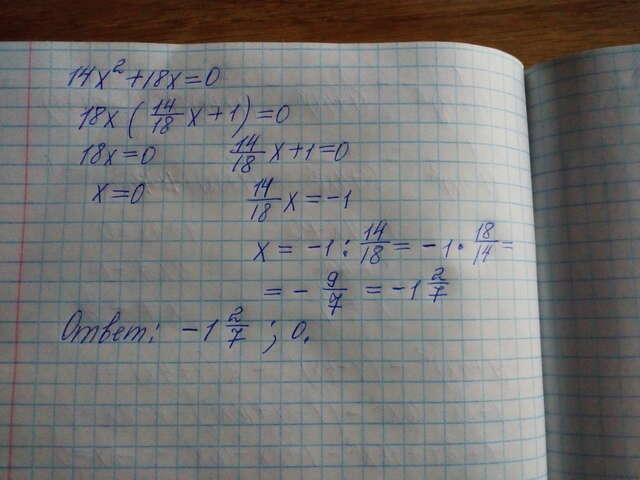 14x² + 18x = 0
18x ( 14/18 x + 1 ) = 0
18x = 0   14/18 x + 1 = 0
x = 0   14/18 x = -1
x = -1 : 14/18 = -1 · 18/14 =
= - 9/7 = -1 2/7
Ответ: -1 2/7 ; 0.